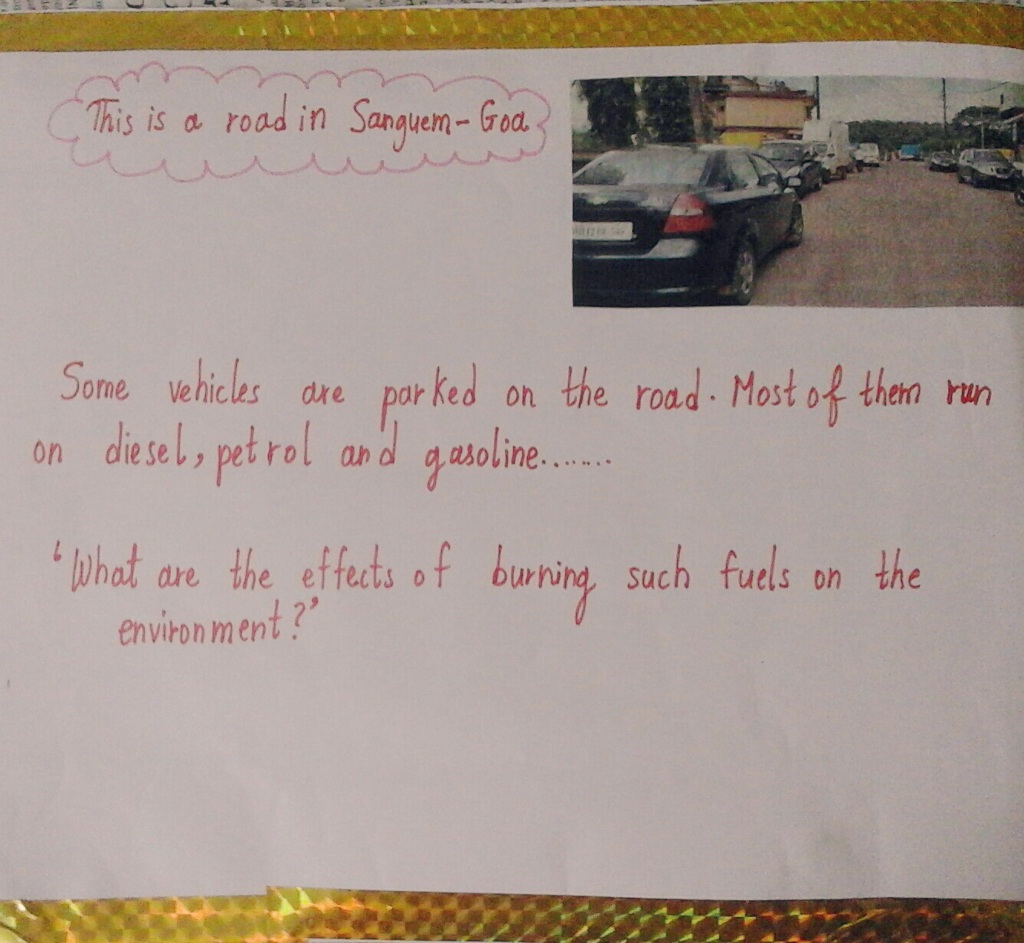 This is a road in Sanguem-Goa
Some vehicles are parked on the road. Most of them run
on diesel, petrol and gasoline........
'What are the effects of burning such fuels on the
environment?'